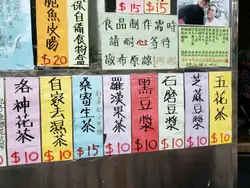 魚皮
$20
保自備食物盒
$15 $15
食品制作需時
請耐心等待
敬布原諒
洛神花茶
$10
自家去濕茶
$10
桑寄生茶
$15
羅漢果茶
$10
黑豆漿
$10
石磨豆漿
$10
芝麻豆漿
$10
五花茶
$10